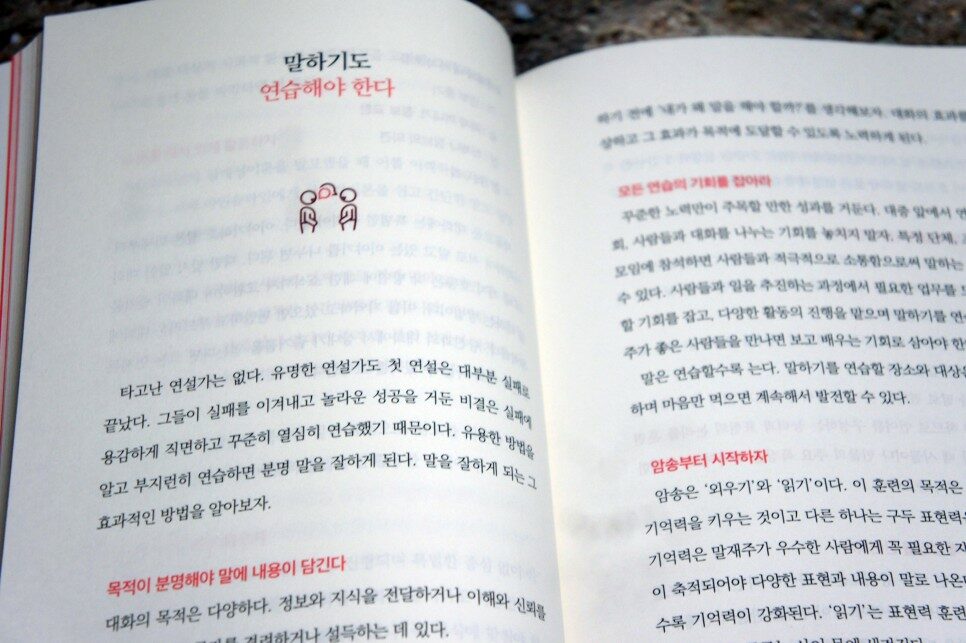 말하기도
연습해야 한다
타고난 연설가는 없다. 유명한 연설가도 첫 연설은 대부분 실패로
끝났다. 그들이 실패를 이겨내고 놀라운 성공을 거둔 비결은 실패에
용감하게 직면하고 꾸준히 열심히 연습했기 때문이다. 유용한 방법을
알고 부지런히 연습하면 분명 말을 잘하게 된다. 말을 잘하게 되는 그
효과적인 방법을 알아보자.
목적이 분명해야 말에 내용이 담긴다
대화의 목적은 다양하다. 정보와 지식을 전달하거나 이해와 신뢰를
격려하거나 설득하는 데 있다.
하기 전에 '내가 왜 말을 해야 할까?'를 생각해보자. 대화의 효과를
상하고 그 효과가 목적에 도달할 수 있도록 노력하게 된다.
모든 연습의 기회를 잡아라
꾸준한 노력만이 주목할 만한 성과를 거둔다. 대중 앞에서 연
회, 사람들과 대화를 나누는 기회를 놓치지 말자. 특정 단체,
모임에 참석하면 사람들과 적극적으로 소통함으로써 말하는
수 있다. 사람들과 일을 추진하는 과정에서 필요한 업무를
할 기회를 잡고, 다양한 활동의 진행을 맡으며 말하기를 연
주가 좋은 사람들을 만나면 보고 배우는 기회로 삼아야 한
말은 연습할수록 는다. 말하기를 연습할 장소와 대상은
하며 마음만 먹으면 계속해서 발전할 수 있다.
암송부터 시작하자
암송은 '외우기'와 '읽기'이다. 이 훈련의 목적은
기억력을 키우는 것이고 다른 하나는 구두 표현력
기억력은 말재주가 우수한 사람에게 꼭 필요한
이 축적되어야 다양한 표현과 내용이 말로 나온
수록 기억력이 강화된다. '읽기'는 표현력 훈련